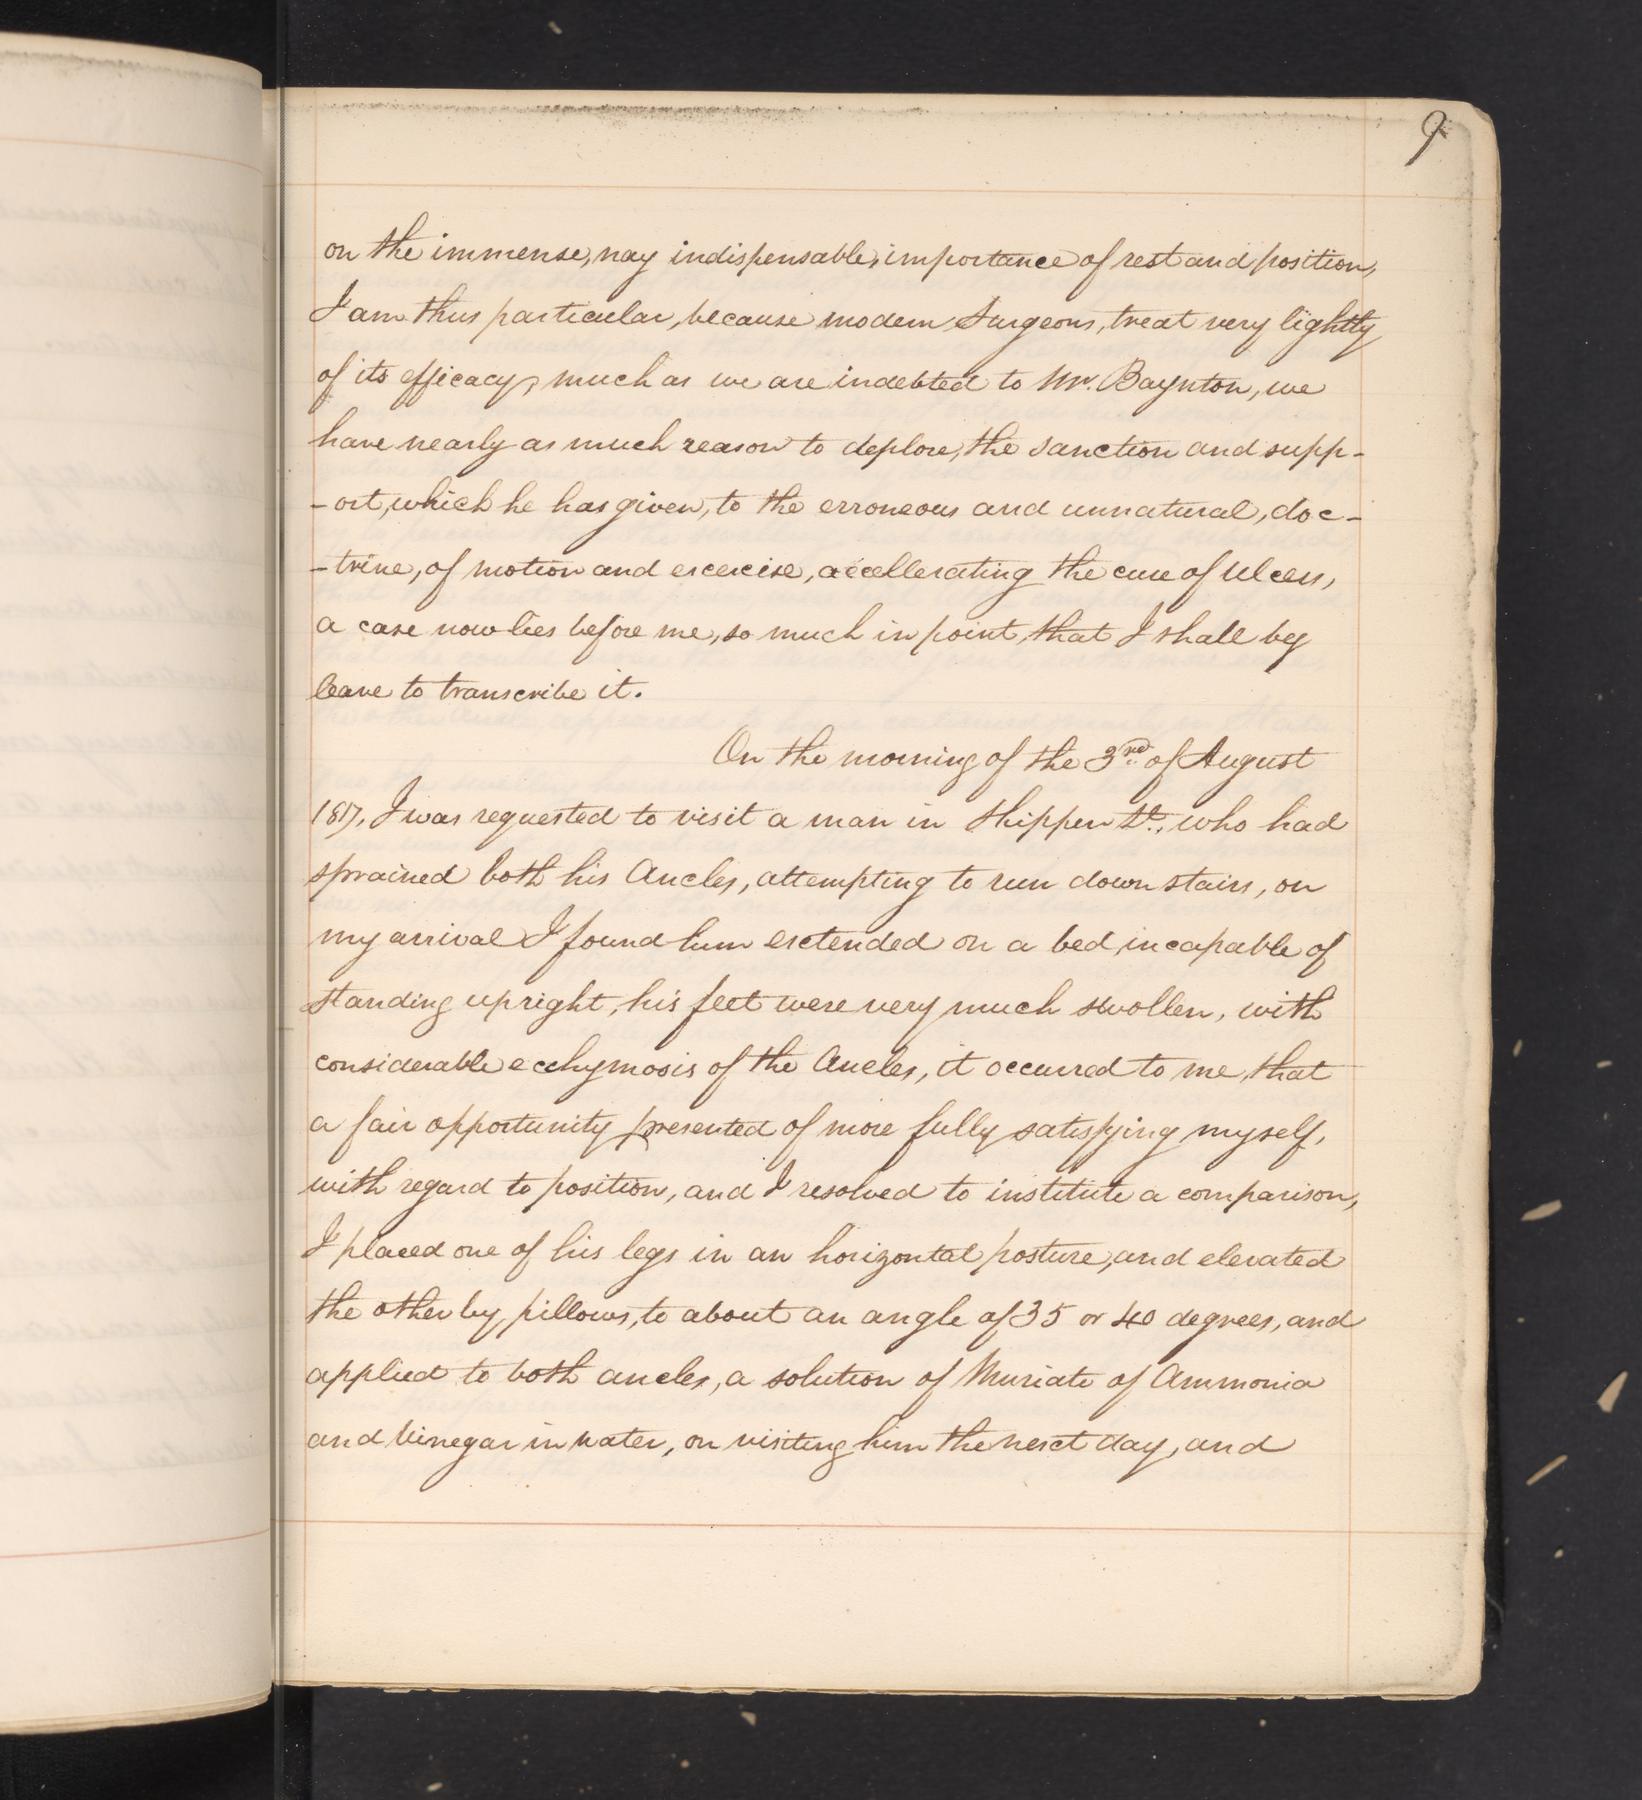 9
on the immense, nay indispensable, importance of rest and position,
I am thus particular, because modern Surgeons, treat very lightly
of its efficacy, much as we are indebted to Mr. Baynton, we
have nearly as much reason to deplore, the sanction and supp-
-ort, which he has given, to the erroneous and unnatural, doc-
-trine, of motion and excercise, accellerating the cure of Ulcers,
a case now lies before me, so much in point, that I shall beg
leave to transcribe it.
On the morning of the 3rd of August
1817, I was requested to visit a man in Shippen St., who had
sprained both his Ancles, attempting to run down stairs, on
my arrival I found him extended on a bed, incapable of
standing upright, his feet were very much swollen, with
considerable ecchymosis of the Ancles, it occurred to me, that
a fair opportunity presented of more fully satisfying myself,
with regard to position, and I resolved to institute a comparison,
I placed one of his legs in an horizontal posture, and elevated
the other by pillows, to about an angle of 35 or 40 degrees, and
applied to both ancles, a solution of Muriate of Ammonia
and Vinegar in water, on visiting him the next day, and